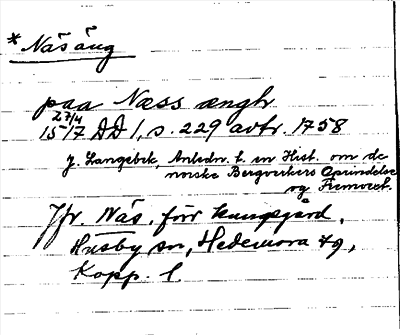 * Näs äng
paa Næss ængh
27/4
1517 DD 1, s. 229 avtr. 1758
J. Langebek, Anledn. t. en Hist. om de
norske Bergverkers Oprindelse
og Fremvext.
Jfr. Näs, förr kungsgård,
Husby sn, Hedemora tg,
Kopp. l.